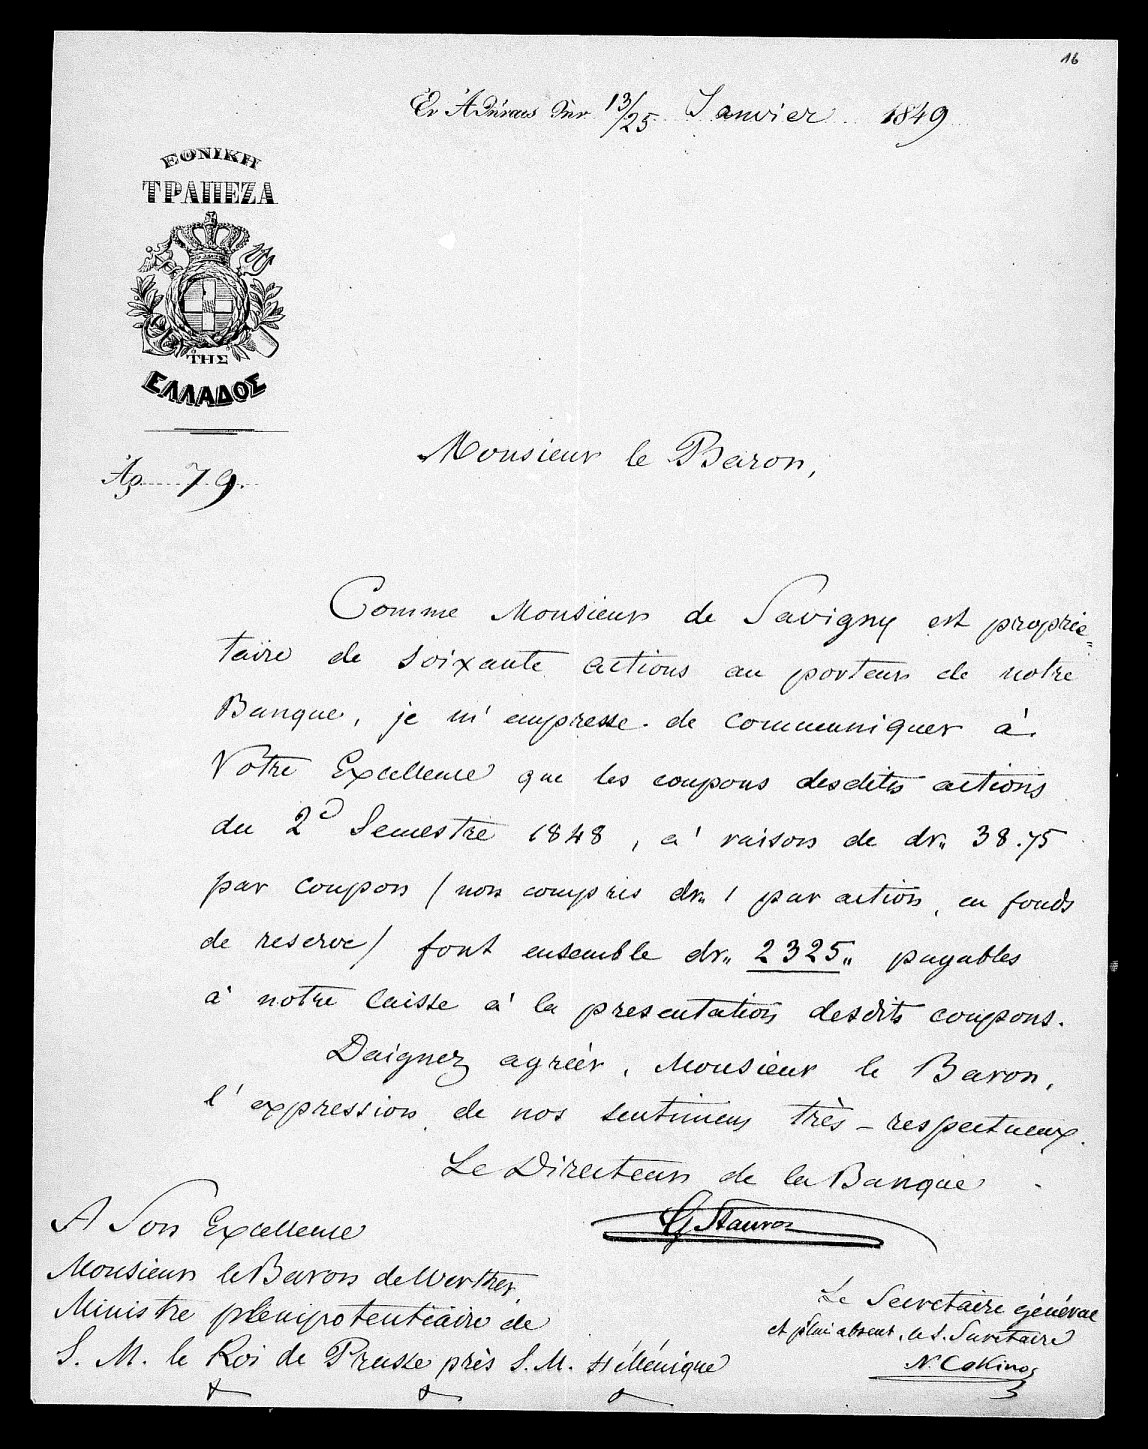 16
Ἐν Ἀθήναις τὴν 13/25 Janvier 1849
ΕΘΝΙΚΗ
ΤΡΑΠΕΖΑ
ΤΗΣ
ΕΛΛΑΔΟΣ
Ἀρ. 79.
Monsieur le Baron,
Comme Monsieur de Savigny est proprié=
taire de soixante actions au porteur de notre
Banque, je m'empresse de communiquer à
Votre Excellence que les coupons desdites actions
du 2d Semestre 1848, à raison de dr. 38.75
par coupon / non compris dr. 1 par action, en fonds
de reserve / font ensemble dr. 2325 „ payables
à notre Caisse à la presentation desdits coupons.
Daignez agréer, Monsieur le Baron,
l'expression de nos sentimens très-respectueux.
Le Directeur de la Banque
G Stauros
A Son Excellence
Monsieur le Baron de Werther,
Ministre plénipotentiaire de
S. M. le Roi de Prusse près S. M. Hellénique
Le Secretaire général
et p. lui absent, le S. Secretaire